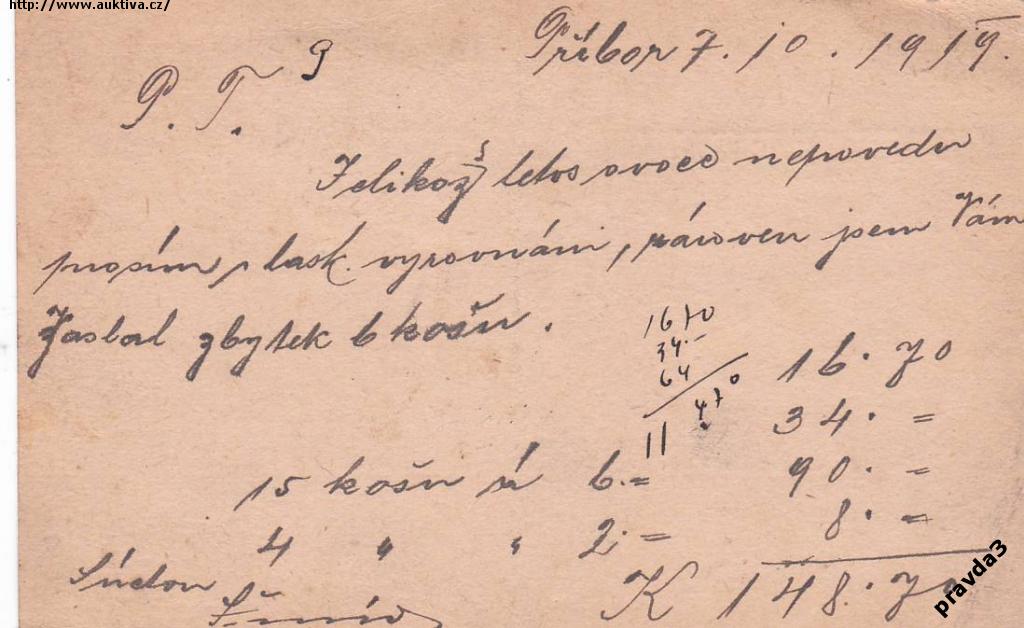 http://www.auktiva.cz/
Příbor 7. 10. 1919.
P. T. 9
Jelikož letos ovoce nepovedu
prosím, lask. vyrovnání, zároven jsem Vám
Zaslal zbytek 6 košu.
16 70
34.-
64
11 4 70
16.70
34.=
15 košu à 6.= 90.=
4 " " 2.= 8.=
K 148.70
pravda3